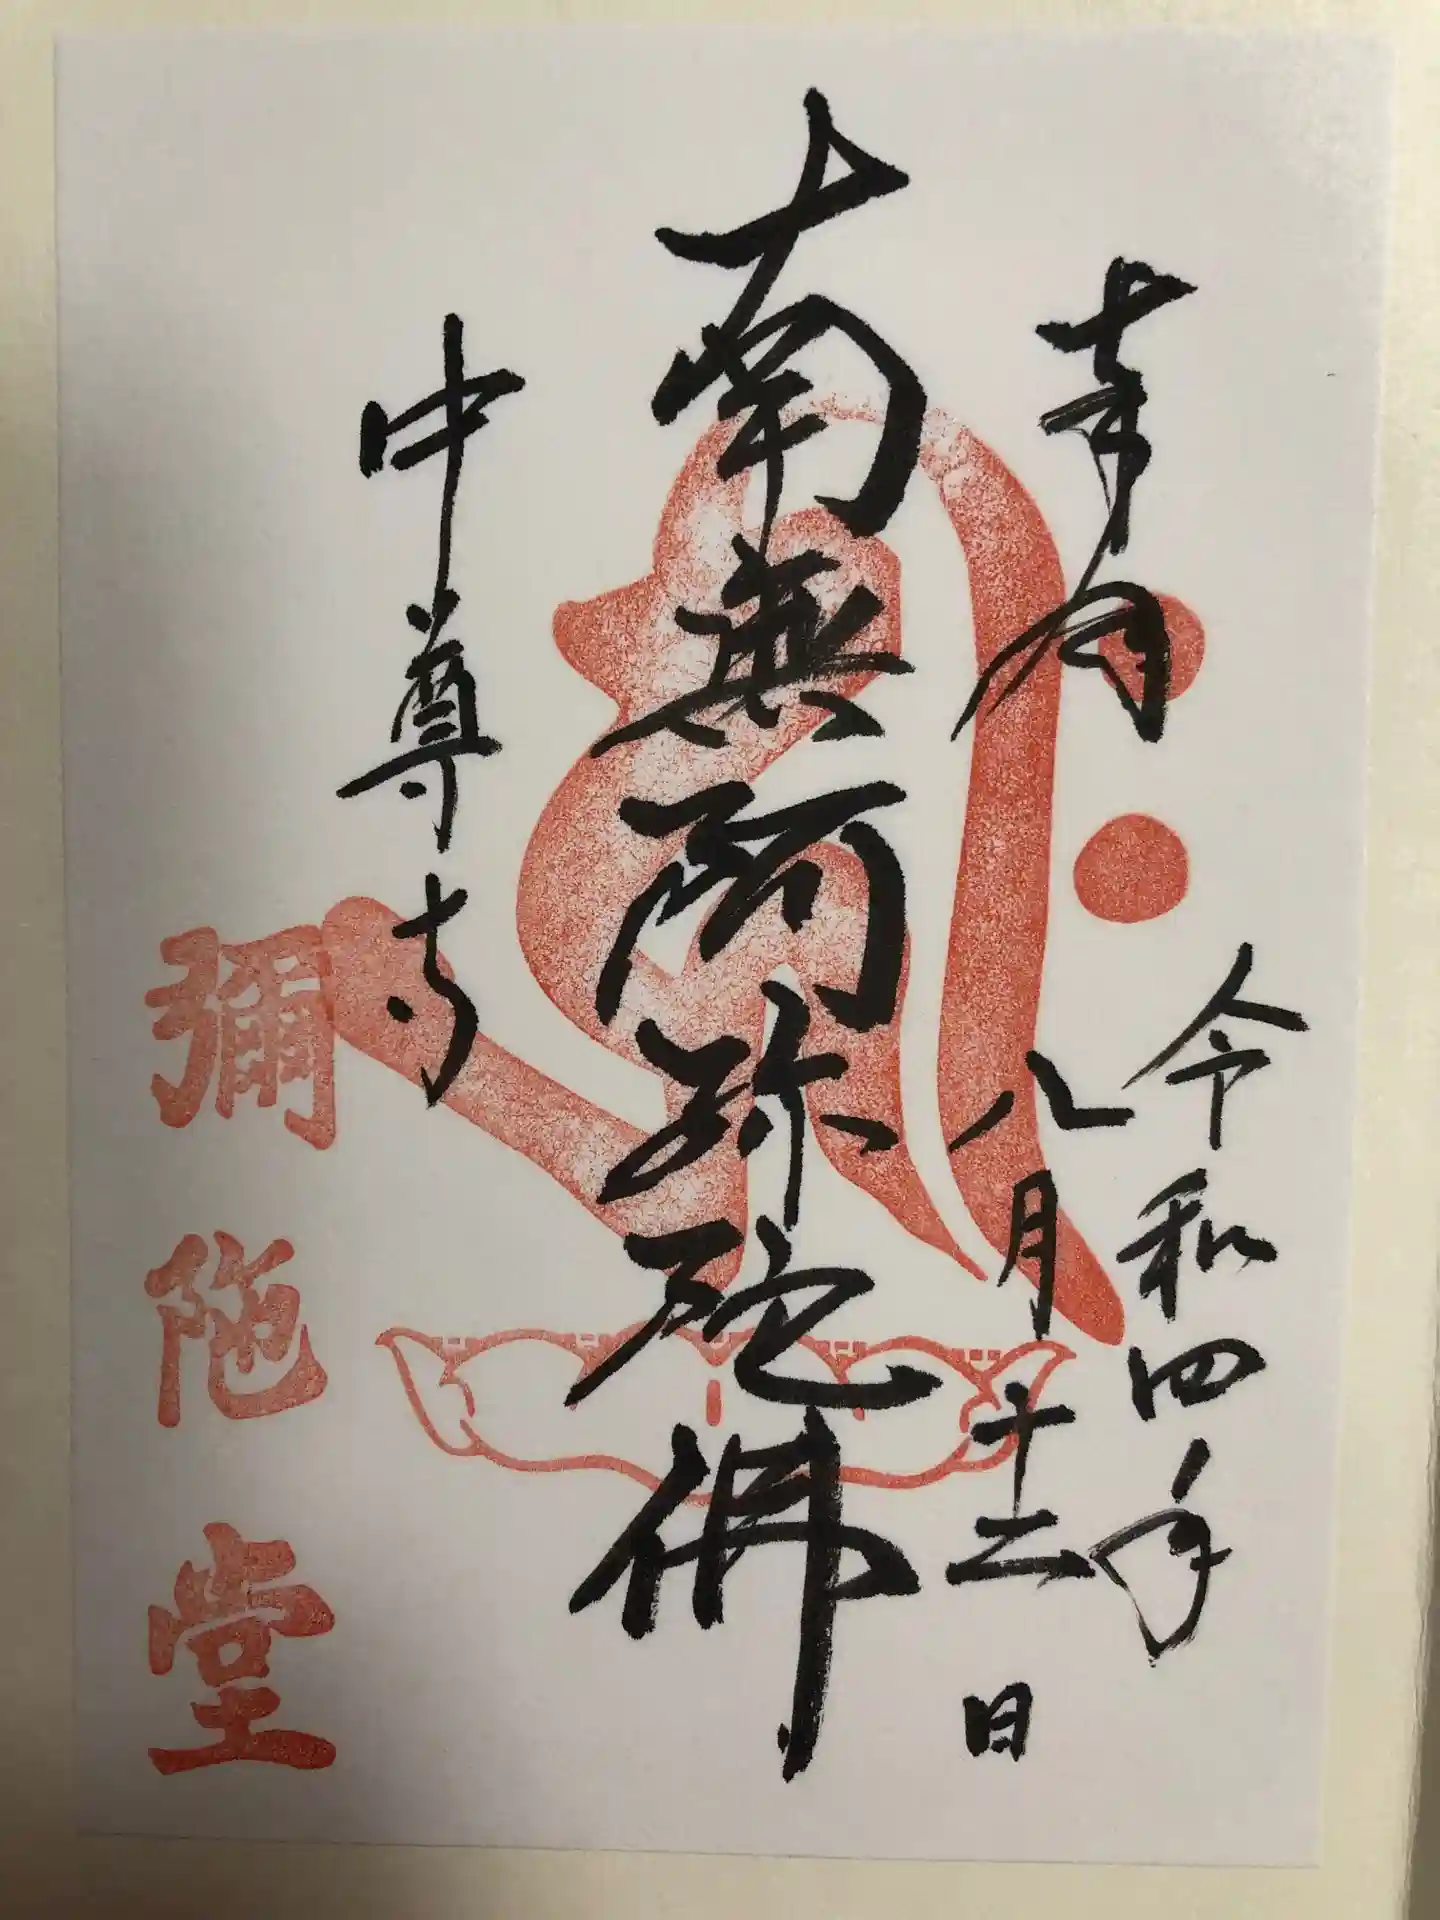 奉拝
令和四年
八月十二日
南無阿弥陀佛
中尊寺
彌陀堂